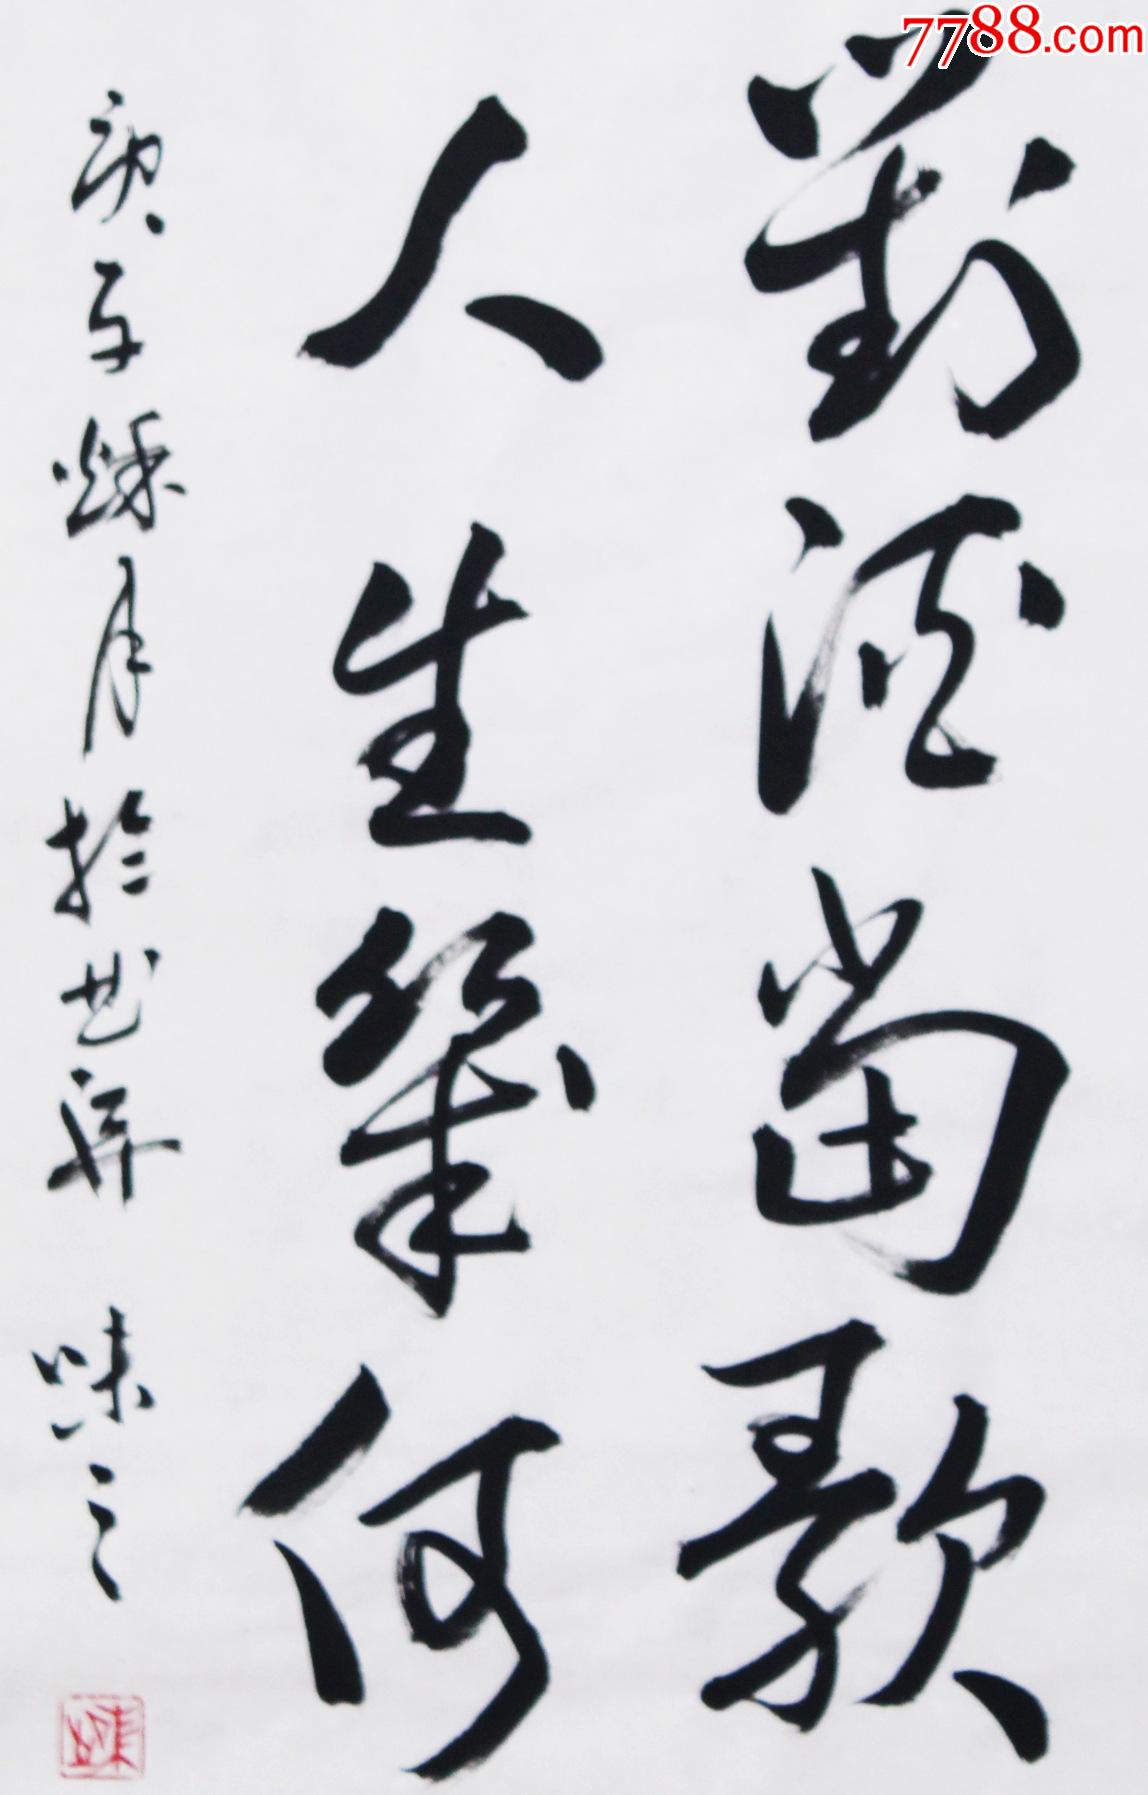 7788.com
對酒當歌
人生幾何
庚子秌月於
味之